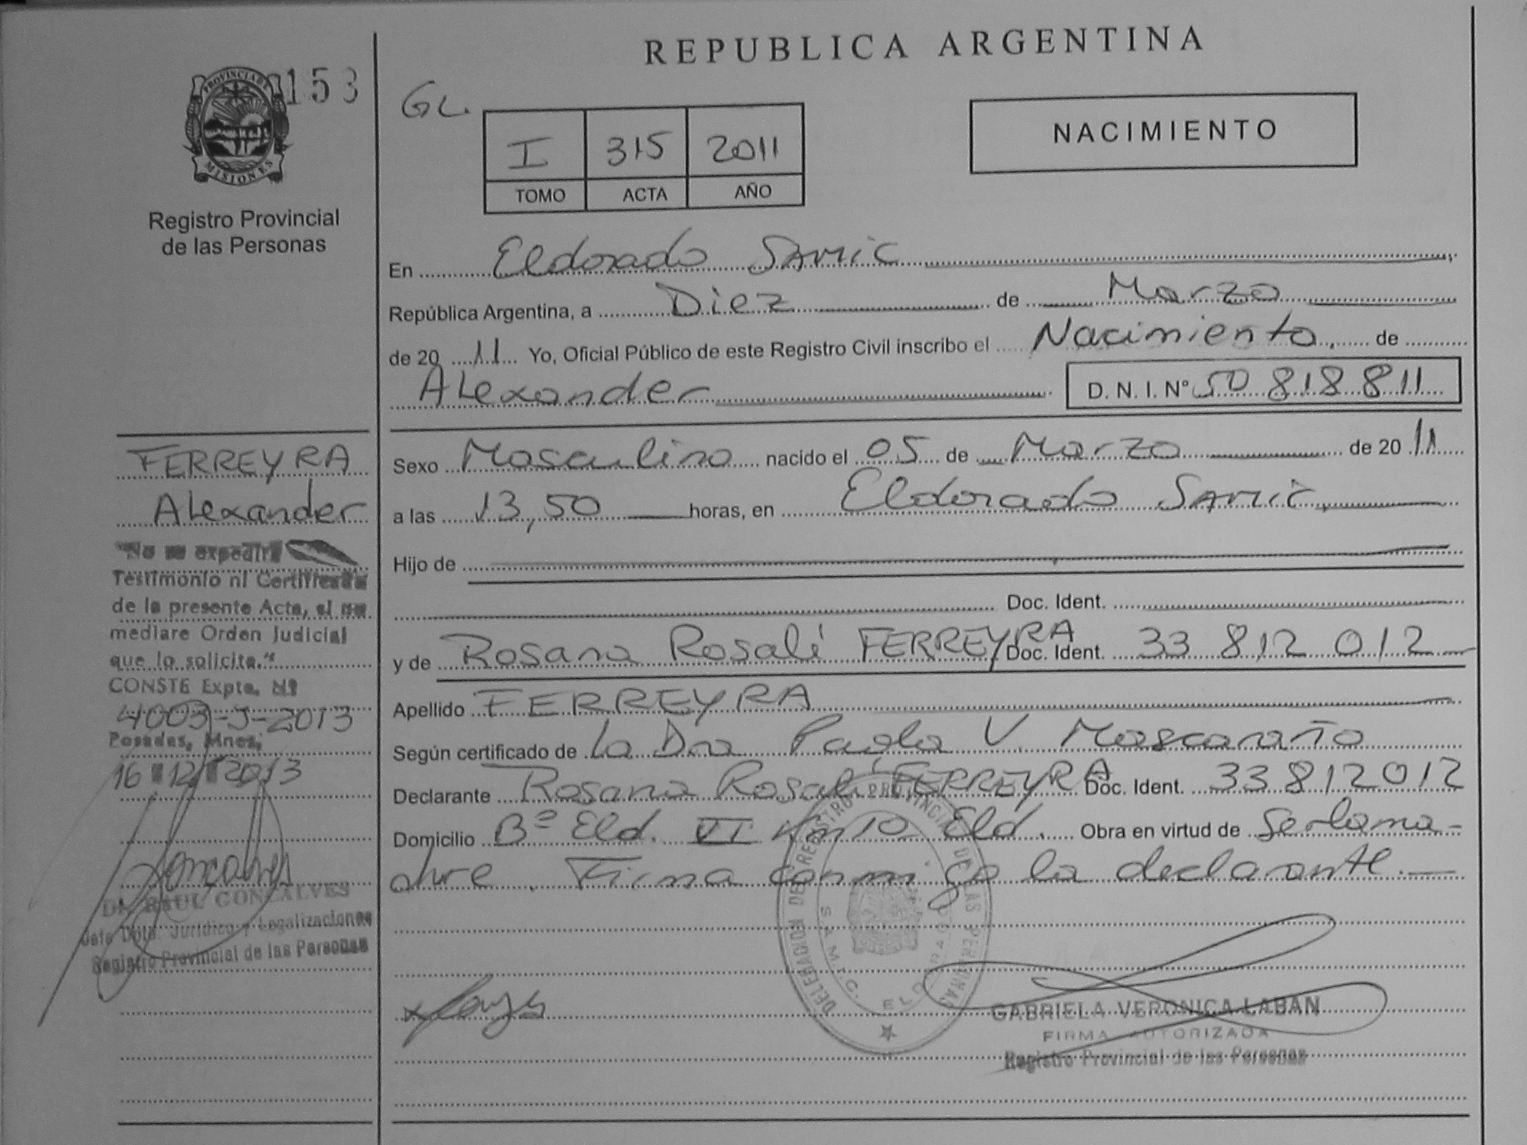 REPUBLICA ARGENTINA
PROVINCIA DE
MISIONES
153
Registro Provincial
de las Personas
GL.
I 315 2011
TOMO ACTA AÑO
NACIMIENTO
En Eldorado SAMIC
República Argentina, a Diez de Marzo
de 20 11 Yo, Oficial Público de este Registro Civil inscribo el Nacimiento, de
Alexander D. N. I. Nº 50 818 811
FERREYRA
Alexander
"No se expedirá
Testimonio ni Certificado
de la presente Acta, si no
mediare Orden Judicial
que lo solicite."
CONSTE Expte. Nº
4003-J-2013
Posadas, Mnes,
16 12 2013
DR. RAUL GONCALVES
Jefe Dpto. Jurídico y Legalizaciones
Registro Provincial de las Personas
Sexo Masculino nacido el 05 de Marzo de 20 11
a las 13,50 horas, en Eldorado SAMIC,
Hijo de
Doc. Ident.
y de Rosana Rosalí FERREYRA Doc. Ident. 33 812 012
Apellido FERREYRA
Según certificado de La Dra Paola V. Mascaraño
Declarante Rosana Rosalí FERREYRA Doc. Ident. 33 812 012
Domicilio Bº Eld. VI Km 10 Eld. Obra en virtud de Ser la ma-
dre. Firma conmigo la declarante.
DELEGACION DE REGISTRO PROVINCIAL DE LAS PERSONAS
S.A.M.I.C. ELDORADO
GABRIELA VERONICA LABAN
FIRMA AUTORIZADA
Registro Provincial de las Personas